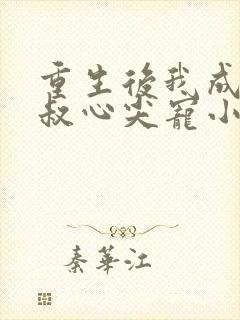 重生後我成
叔心尖寵小
秦華江